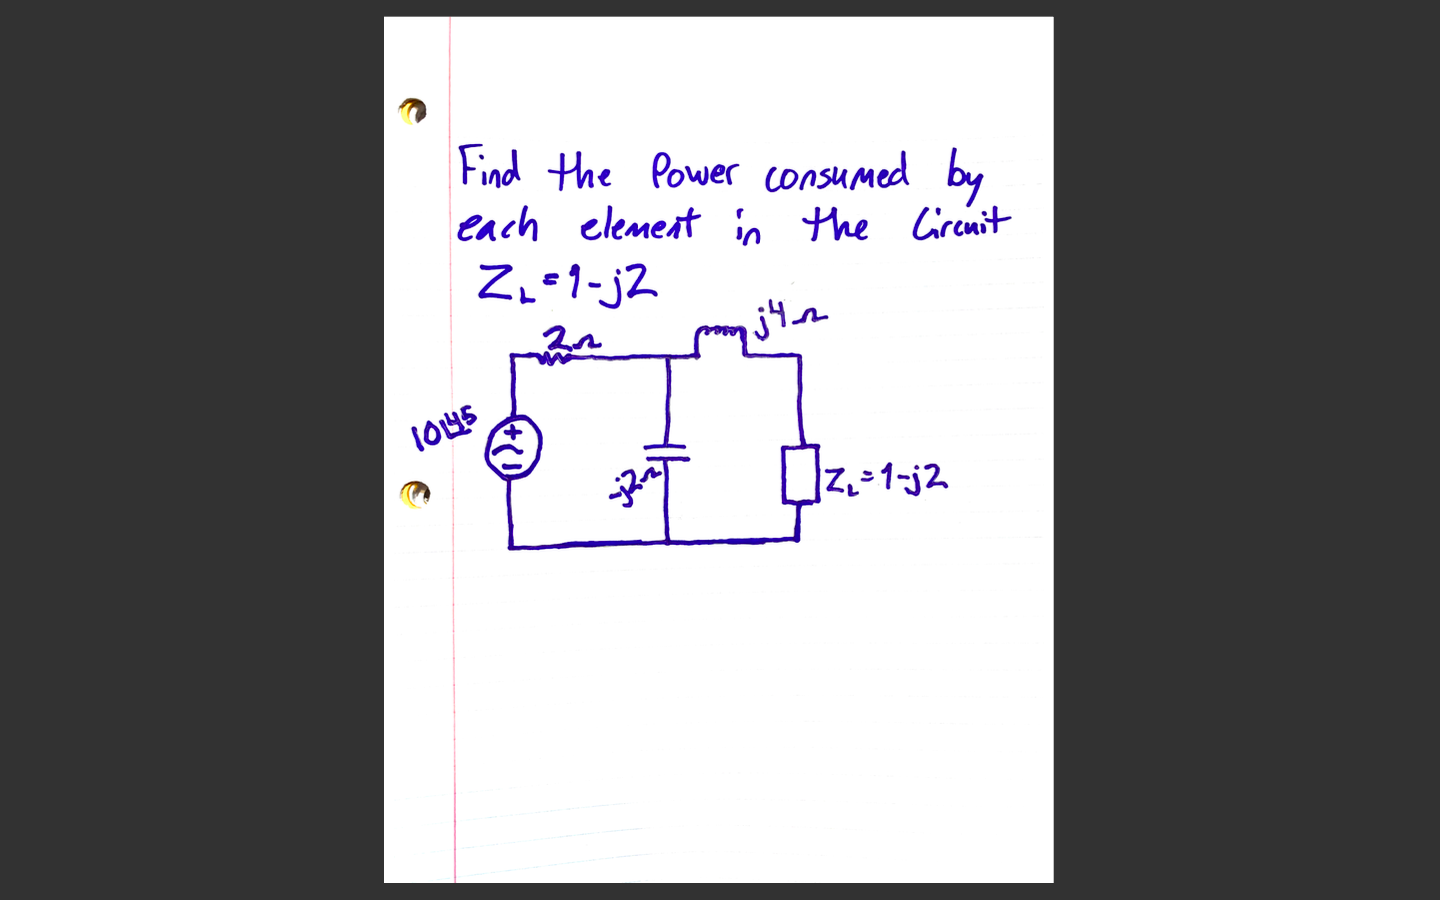 Find the Power consumed by
each element in the Circuit
Z_L = 1-j2
2Ω
j4Ω
10∠45
-j2Ω
Z_L = 1-j2